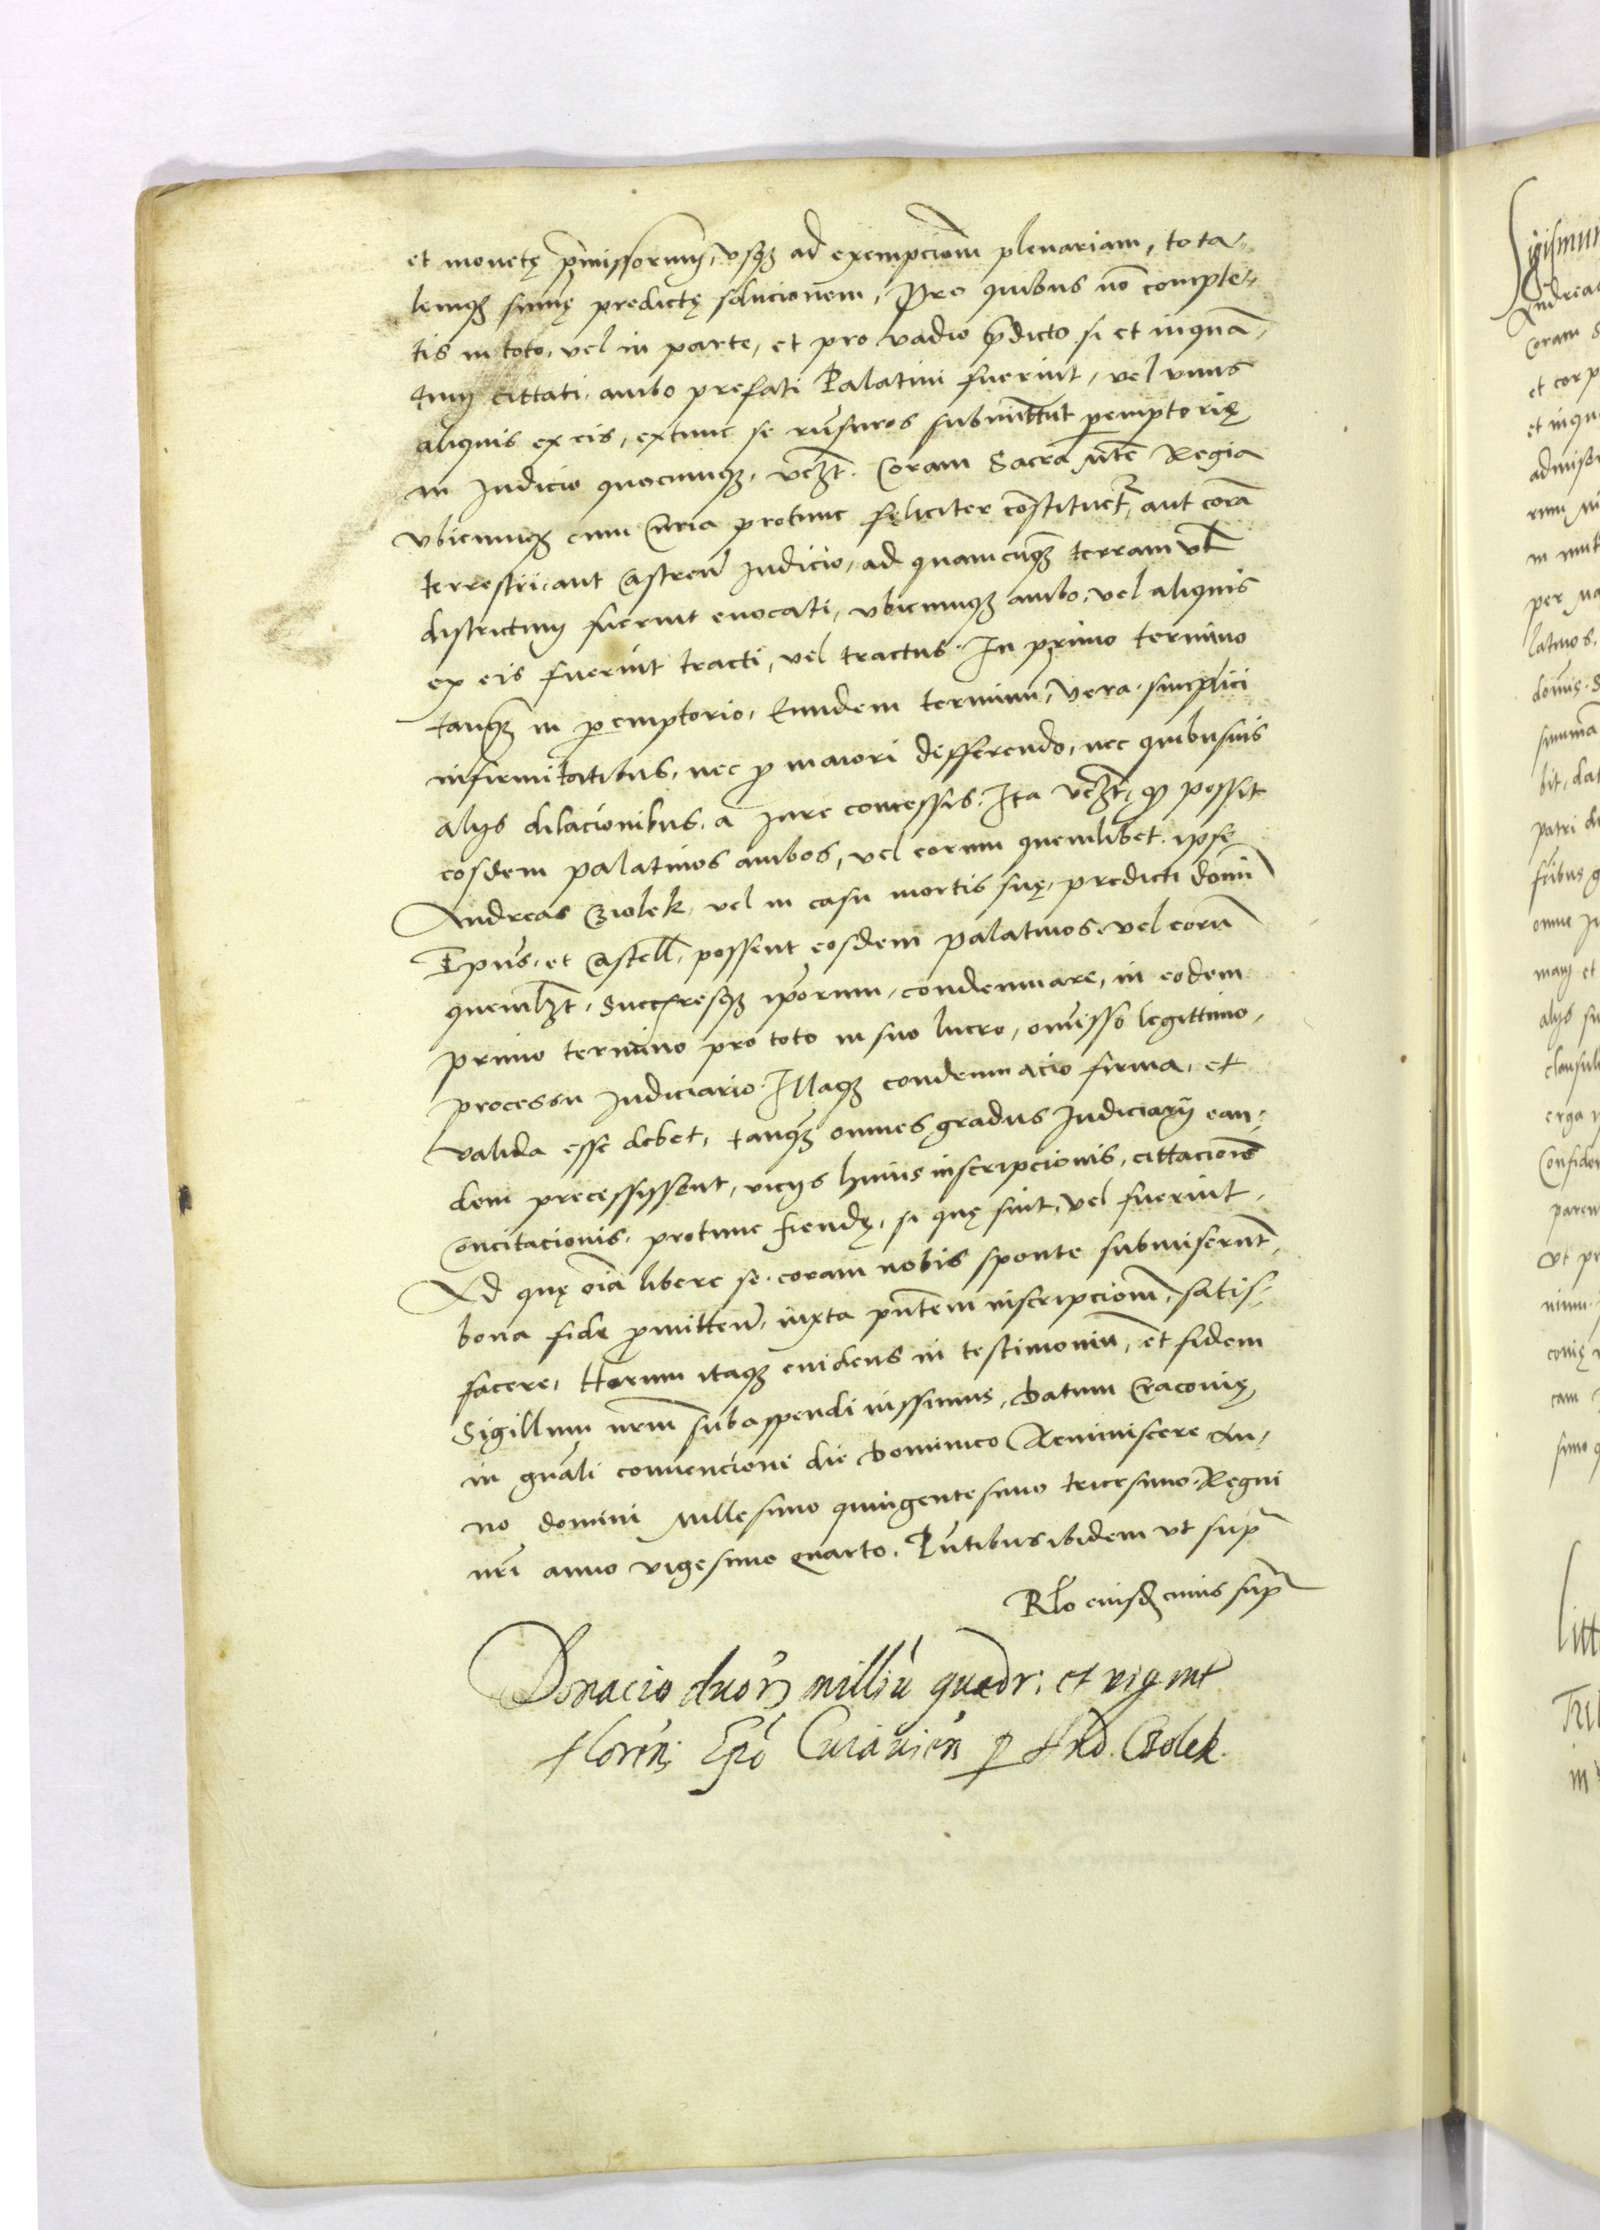 et monetę p̄missorum, vsqȝ ad exempciom̄ plenariam, tota-
lemqȝ sum̄ę predictę solucionem, Pro quibus nō comple-
tis in toto, vel in parte, et pro vadio p̄dicto si et inquā-
tum cittati, ambo prefati Palatini fuerint, vel vnus
aliquis ex eis, extunc se rn̄suros submittūt peremptorię
in Judicio quocunqȝ, vcȝt. Coram Sacra Mte Regia
vbicunqȝ cum Curia protunc feliciter cōstituetr, aut corā
terrestri, aut Castren̄ Judicio, ad quamcūqȝ terram vel
districtum fuerint euocati, vbicunqȝ ambo, vel aliquis
ex eis fuerint tracti, vel tractus. In primo termino
tanqȝ in peremptorio, Eundem terminū, vera simplici
infirmitatibus, nec p maiori differendo, nec quibusuis
alijs dilacionibus, a Jure concessis. Ita vcȝt, qȝ possit
eosdem palatinos ambos, vel eorum quemlibet ipse
Andreas Cziolek, vel in casu mortis suę, predicti domi
Epus, et Castell, possent eosdem palatinos, vel eorū
quemlȝt, Succresqȝ ipsorum, condemnare, in eodem
primo termino pro toto in suo lucro, omisso legittimo
processu Judiciario. Illaqȝ condemnacio firma, et
valida esse debet, tanqȝ omnes gradus Judiciarij ean-
dem precessissent, vicijs huius inscripcionis, cittacionē
Concitacionis, protunc fiendę, si quę sint, vel fuerint.
Ad quę oīa libere se coram nobis sponte submiserūt,
bona fide p̄mitten̄, iuxta pn̄tem inscripciom̄, satis-
facere, Horum itaqȝ euidens in testimoniū, et fidem
Sigillum nrm̄ subappendi iussimus, Datum Cracouię
in gn̄ali conuencione die Dominico Reminiscere An-
no domini Millesimo quingentesimo tricesimo. Regni
nrī anno vigesimo quarto. Pn̄tibus ibidem vt supr
Rlo eiusdȝ cuius supr
Donacio duorȝ milliū quadr: et vigint
floren: Epo Cuiauien p And. Czolek.